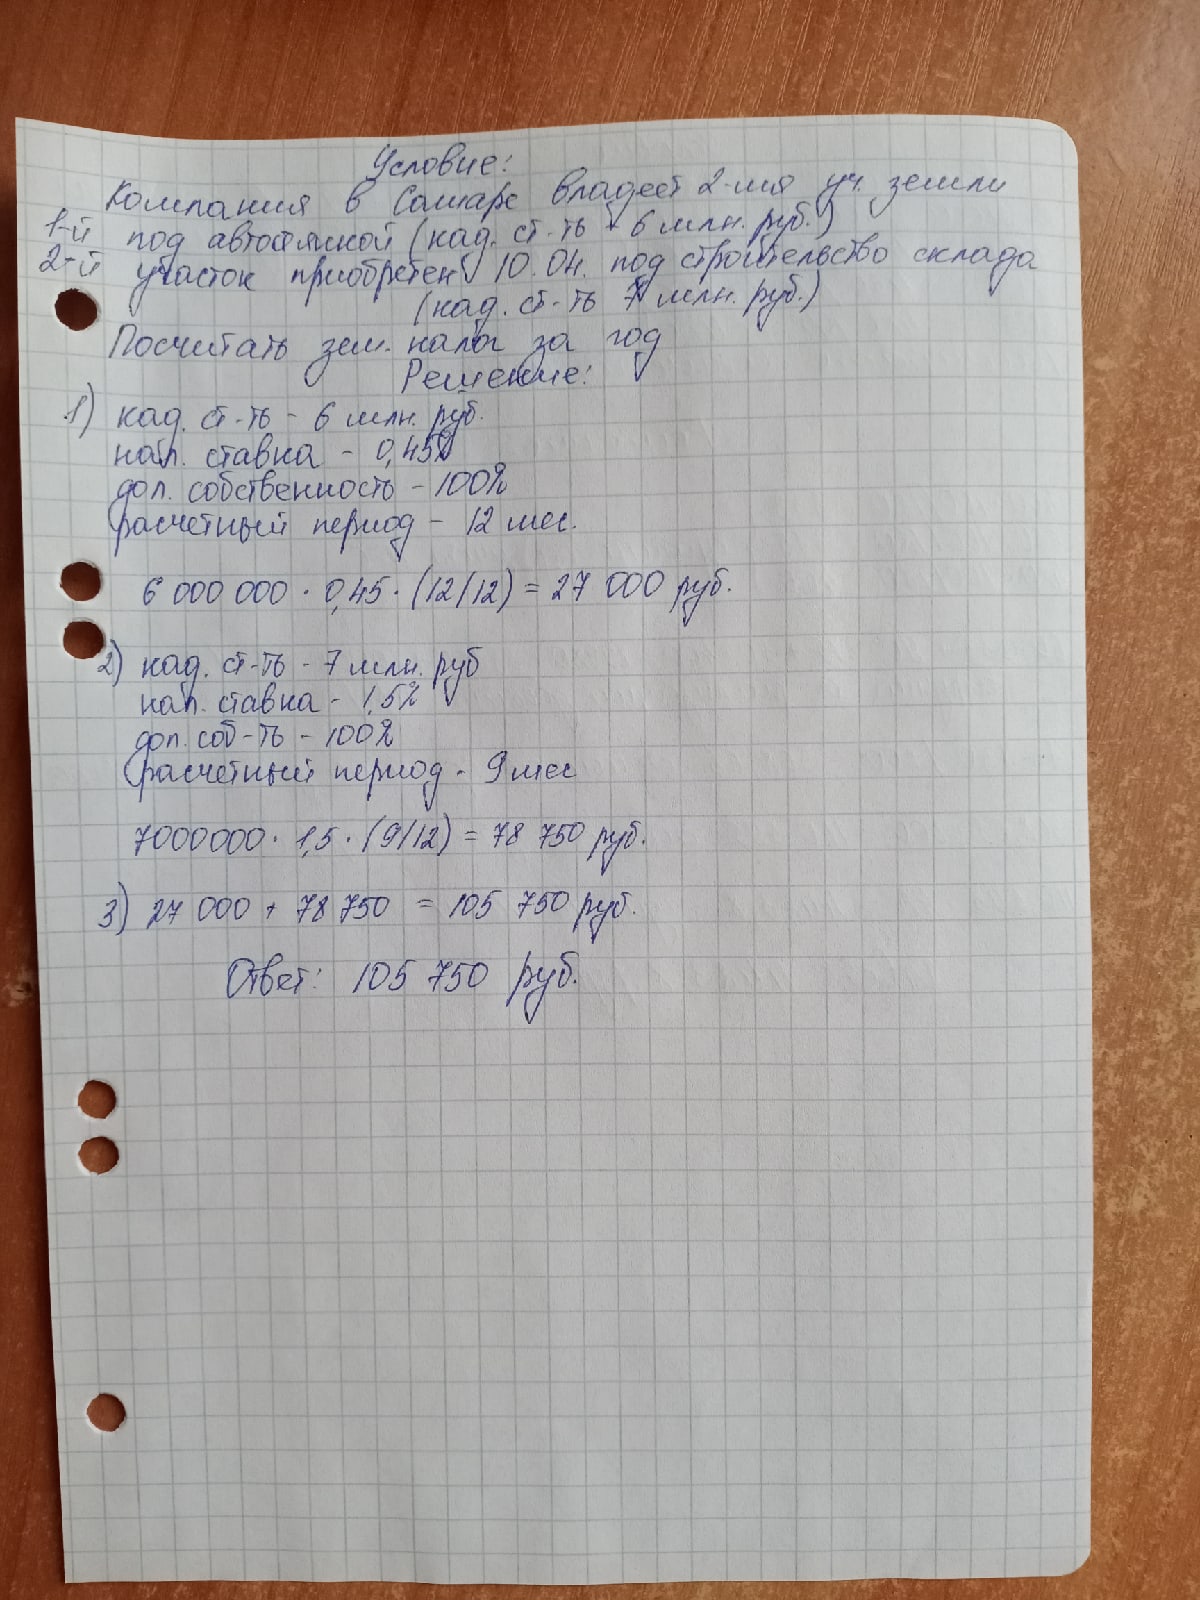 Условие:
Компания в Самаре владеет 2-мя уч. земли
1-й под автостоянкой (кад. ст-ть - 6 млн. руб.)
2-й участок приобретен 10.04. под строительство склада
(кад. ст-ть 7 млн. руб.)
Посчитать зем. налог за год
Решение:
1) кад. ст-ть - 6 млн. руб.
нал. ставка - 0,45%
дол. собственность - 100%
расчетный период - 12 мес.
6 000 000 · 0,45 · (12/12) = 27 000 руб.
2) кад. ст-ть - 7 млн. руб
нал. ставка - 1,5%
дол. соб-ть - 100%
расчетный период - 9 мес
7000000 · 1,5 · (9/12) = 78 750 руб.
3) 27 000 + 78 750 = 105 750 руб.
Ответ: 105 750 руб.